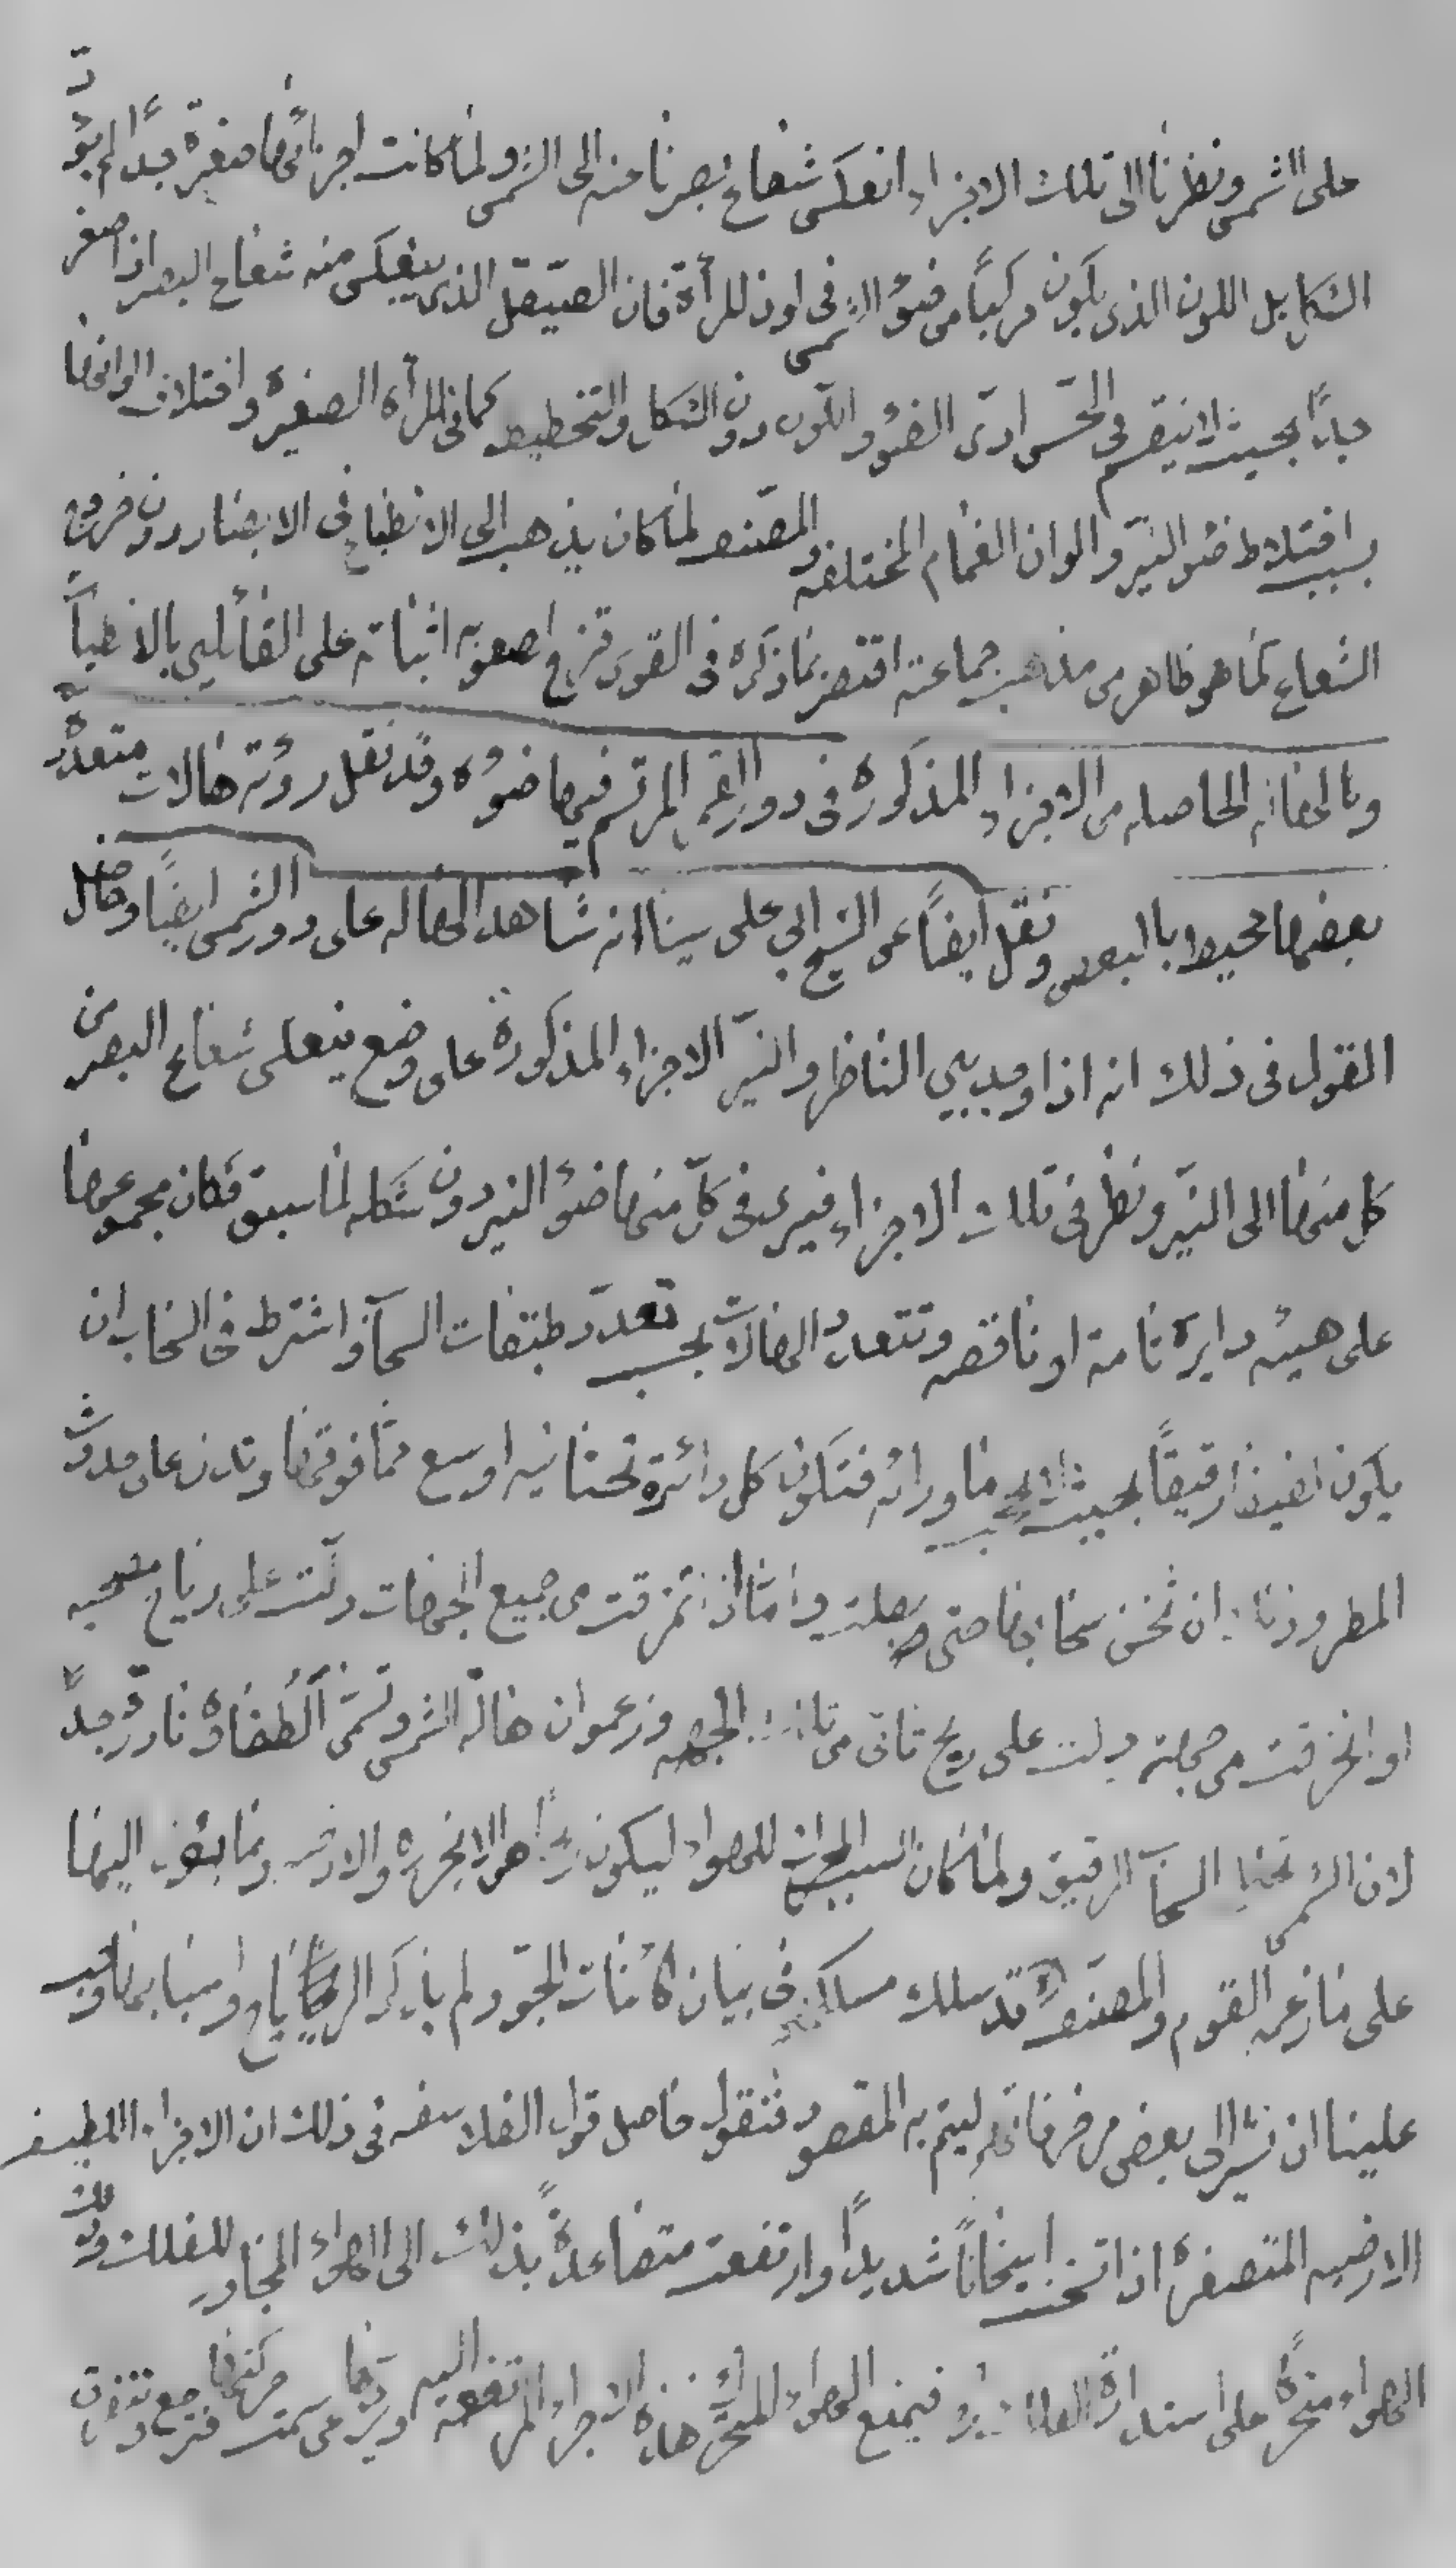 على الشمس ونظرنا الى تلك الاجزاء انعكس شعاع بصرنا منه الى الشمس ولما كانت اجزائها صغيرة جداً لم يؤدّ
الشكل بل اللون الذى يكون مركباً من ضوء الشمس فى لون المرأة فان الصيقل الذى ينعكس منه شعاع البصر اذا صغر
جداً بحيث لا ينقسم فى الحس ادى الضوء واللون دون الشكل والتخطيط كما فى المرأة الصغيرة واختلاف الوانها
بسبب اختلاط ضوء النير والوان الغمام المختلفه والمصنف لما كان يذهب الى الانطباع فى الابصار دون خروج
الشعاع كما هو ظاهر من مذهب جماعته اقتصر بما ذكره فى القوس قزح و صعوبه اثباته على القائلين بالانطباع
وبالهاله الحاصله من الاجزاء المذكورة فى دور القمر المرتسم فيها ضوءه وقد نقل رؤية هالات متعددة
بعضها محيط بالبعض ونقل ايضاً عن الشيخ ابي على سينا انه شاهد الهاله على دور الشمس ايضاً وحاصل
القول فى ذلك انه اذا وجد بين الناظر والنير الاجزاء المذكورة على وضع ينعكس شعاع البصر من
كل منها الى النير ونظر فى تلك الاجزاء فيرى فى كل منها ضوء النير دون شكله لما سبق فكان مجموعها
على هيئه دايرة تامة او ناقصه وتتعدد الهالات بحسب تعدد طبقات السحاب واشترط فى السحاب ان
يكون رقيقاً بحيث لا يحجب ما ورائه فتكون كل دائرة تحتانيه اوسع مما فوقها وتدل على حدوث
المطر ان ثخن سحابها حتى بطلت واما اذا تمزقت من جميع الجهات دلت على رياح
او انخرقت من جهة دلت على ريح تاتى من تلك الجهه وزعموا ان هالة الشمس وتسمى الطفاوة نادرة جداً
لان الشمس السحاب الرقيق ولما كان السبب للهواء ليكون الابخره والادخنه وما يؤل اليها
على ما زعمه القوم والمصنف قد سلك مسلكهم فى بيان كائنات الجو ولم يذكر الرياح واسبابها وجب
علينا ان نشير الى بعض ليتم به المقصود فنقول حاصل قول الفلاسفه فى ذلك ان الاجزاء اللطيفه
الارضيه المتصغرة اذا تسخنت شديداً وارتفعت متصاعدة بذلك الى الهواء المجاور للفلك وذلك
الهواء متحرك على استدارة فيمنع الهواء المتحرك هذه الاجزاء المرتفعه اليه ويردها من سمت حركتها فترجع